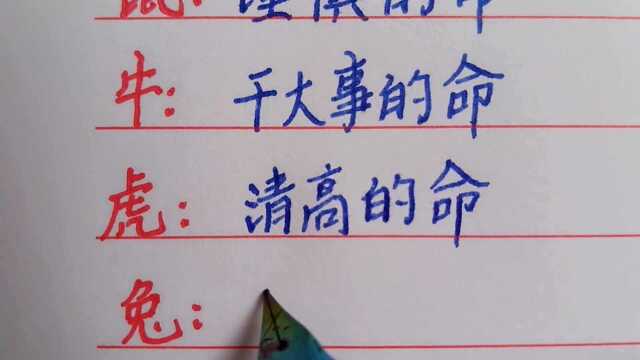 鼠: 的命
牛: 干大事的命
虎: 清高的命
兔: